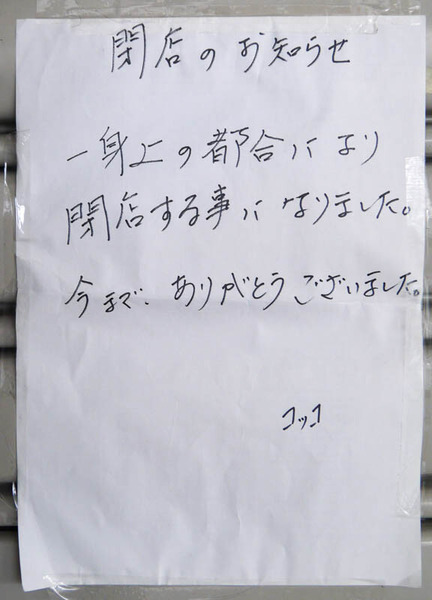 閉店のお知らせ
一身上の都合により
閉店する事になりました。
今まで、ありがとうございました。
コッコ